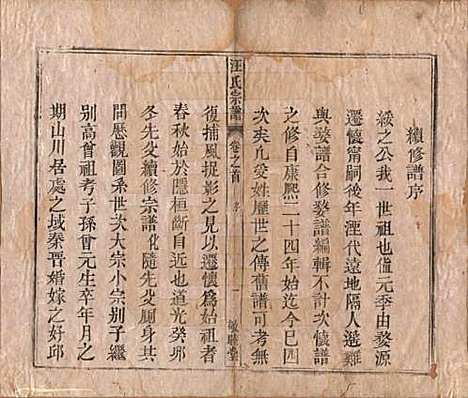 續修譜序
綏之公我一世祖也值元季由婺源
遷懷甯嗣後年湮代遠地隔人遙難
與婺譜合修婺譜編輯不計次懷譜
之修自康熙二十四年始迄今已四
次矣凡受姓歷世之傳舊譜可考無
汪氏宗譜
卷之首
序
一
敬勝堂
復捕風捉影之見以遷懷為始祖者
春秋始於隱桓斷自絕也道光癸卯
冬先父續修宗譜化隨先父厠身共
間歷觀圖系世次大宗小宗別子繼
別高曾祖考子孫曾元生卒年月之
期山川居處之域秦晉婚嫁之好邱